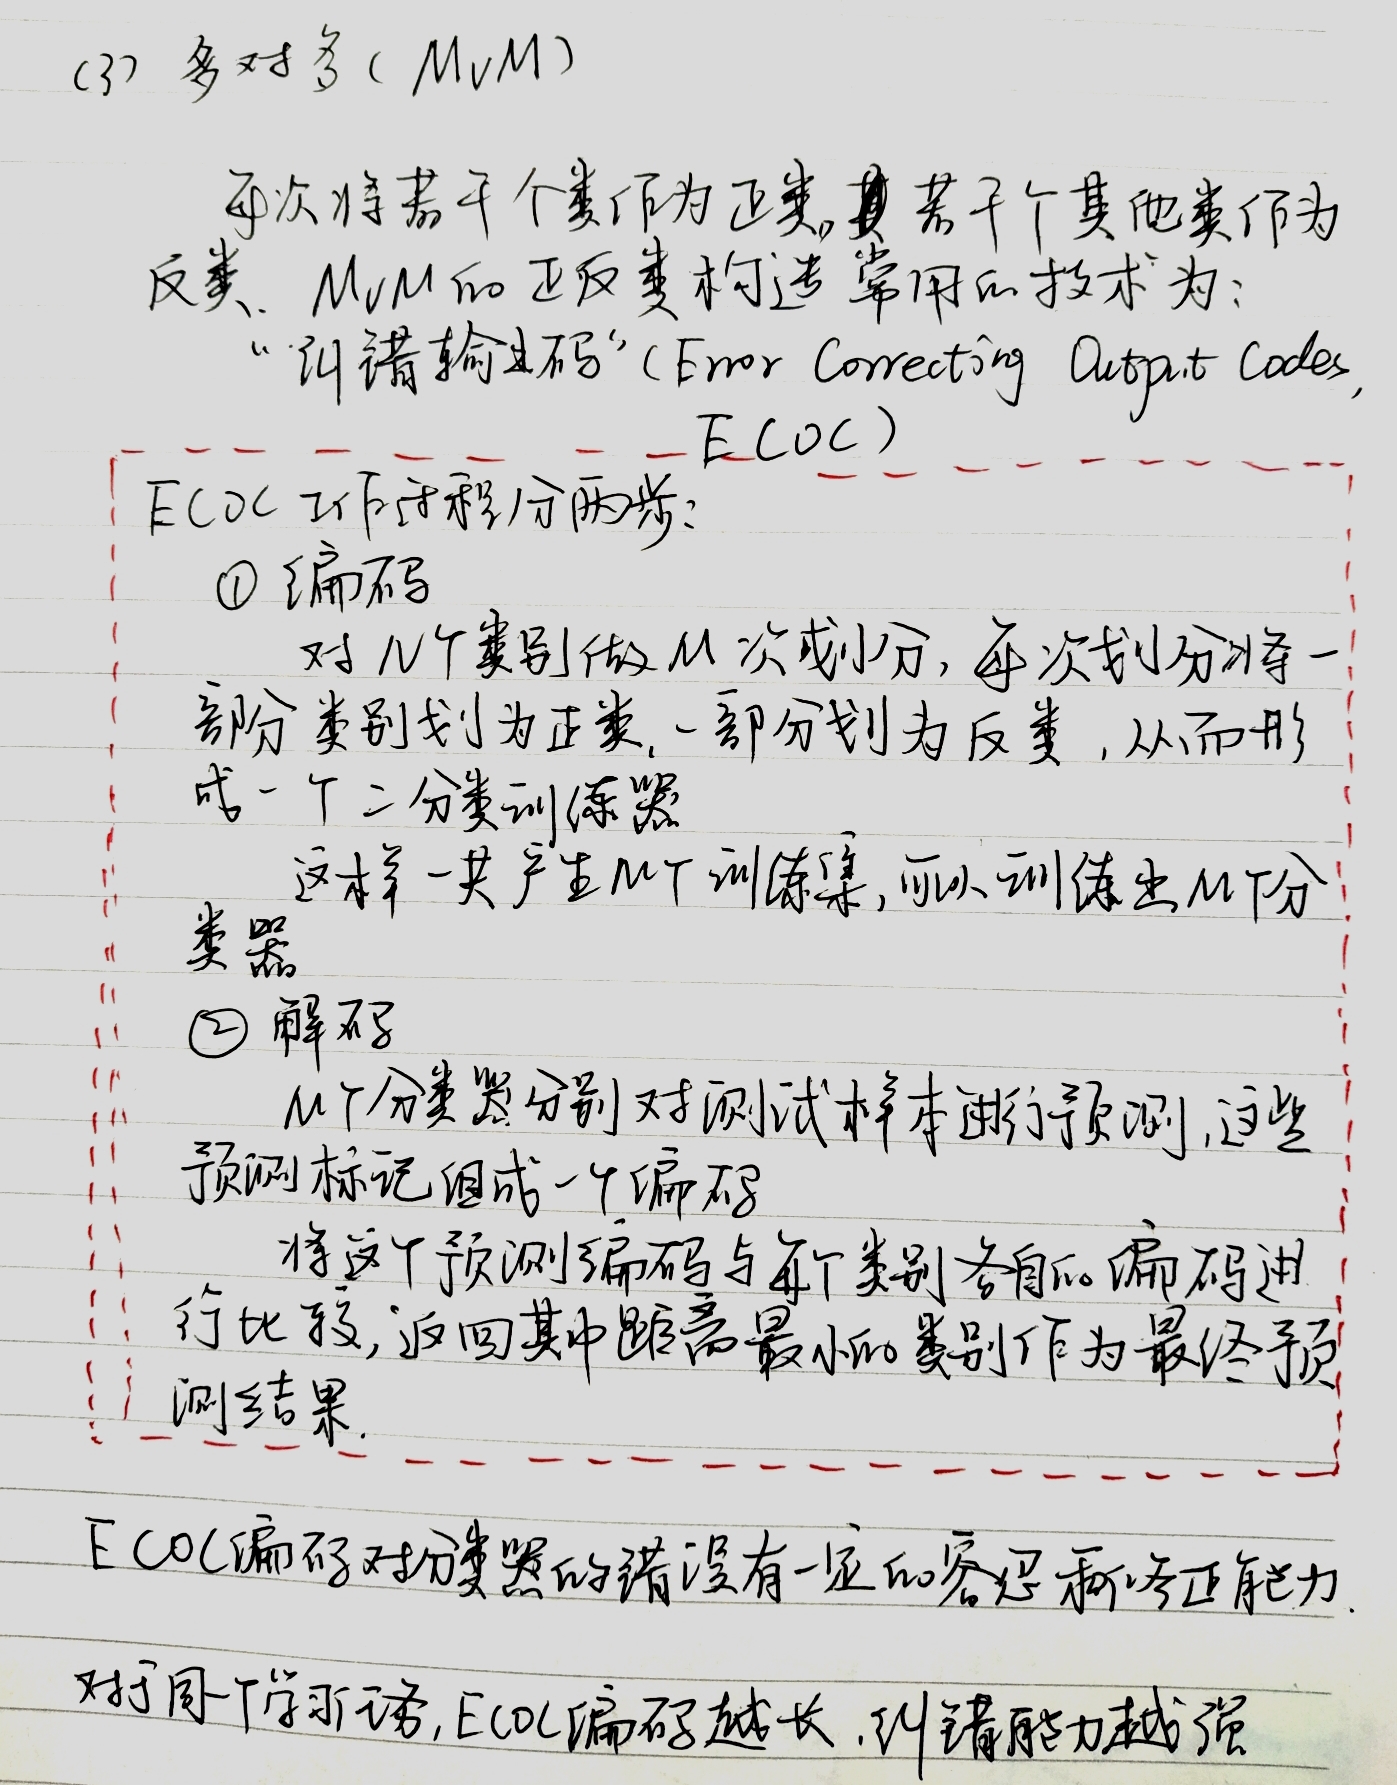 (3) 多对多(MvM)
每次将若干个类作为正类,若干个其他类作为
反类. MvM的正反类构造常用的技术为:
“纠错输出码”(Error Correcting Output Codes,
ECOC)
ECOC工作过程分两步:
① 编码
对N个类别做M次划分,每次划分将一
部分类别划为正类,一部分划为反类,从而形
成一个二分类训练器
这样一共产生M个训练集,可以训练出M个分
类器
② 解码
M个分类器分别对测试样本进行预测,这些
预测标记组成一个编码
将这个预测编码与每个类别各自的编码进
行比较,返回其中距离最小的类别作为最终预
测结果.
ECOC编码对分类器的错误没有一定的容忍和修正能力.
对于同一个学习任务,ECOC编码越长,纠错能力越强